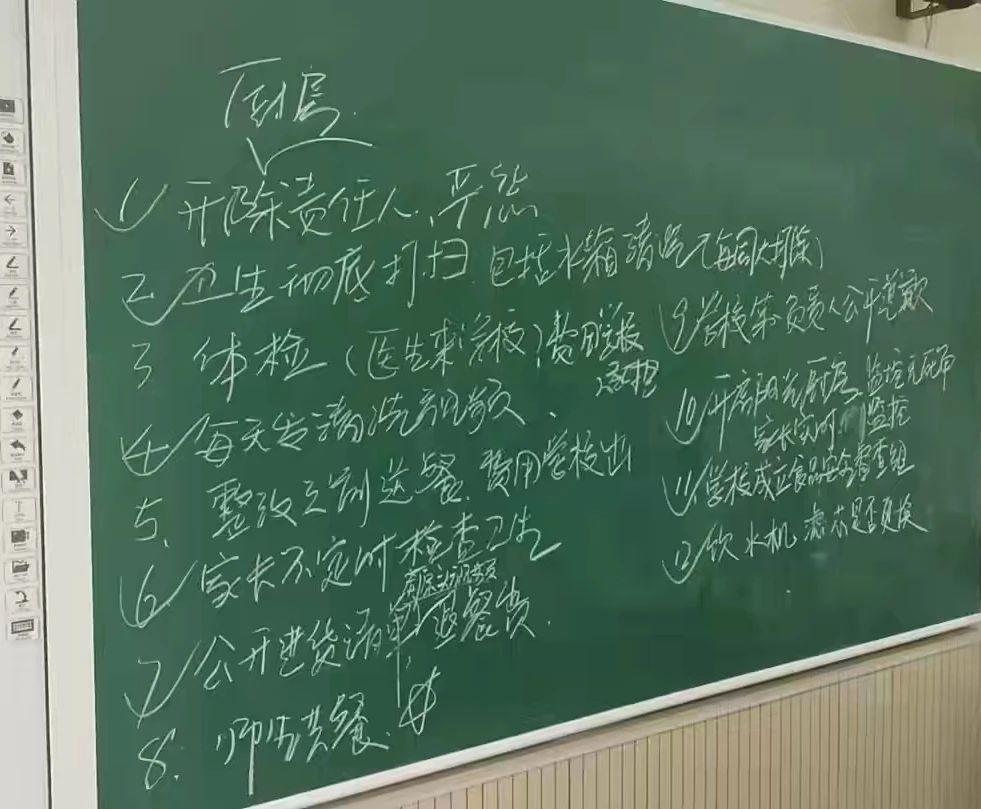 厨房.
1 开除责任人、严惩
2 卫生彻底打扫 包括水箱清洗(每周大扫除)
3 体检(医生来学校)费用学校
承担
4 每天发清洗视频、
5. 整改之前送餐. 费用学校出
6 家长不定时检查卫生
7 公开进货清单, 退餐费.
8. 师生共餐.
9 学校第一负责人公开道歉
10 开启阳光厨房 监控无死角
家长实时 监控
11 学校成立食品安全督查组
12 饮水机 滤芯是否更换